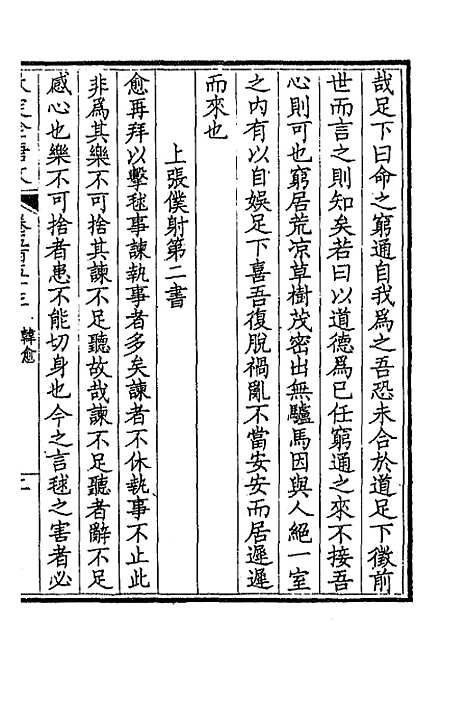 哉足下曰命之窮通自我爲之吾恐未合於道足下徵前
世而言之則知矣若曰以道德爲已任窮通之來不接吾
心則可也窮居荒凉草樹茂密出無驢馬因與人絕一室
之内有以自娛足下喜吾復脫禍亂不當安安而居遲遲
而來也
上張僕射第二書
愈再拜以擊毬事諫執事者多矣諫者不休執事不止此
非爲其樂不可捨其諫不足聽故哉諫不足聽者辭不足
感心也樂不可捨者患不能切身也今之言毬之害者必
韓愈